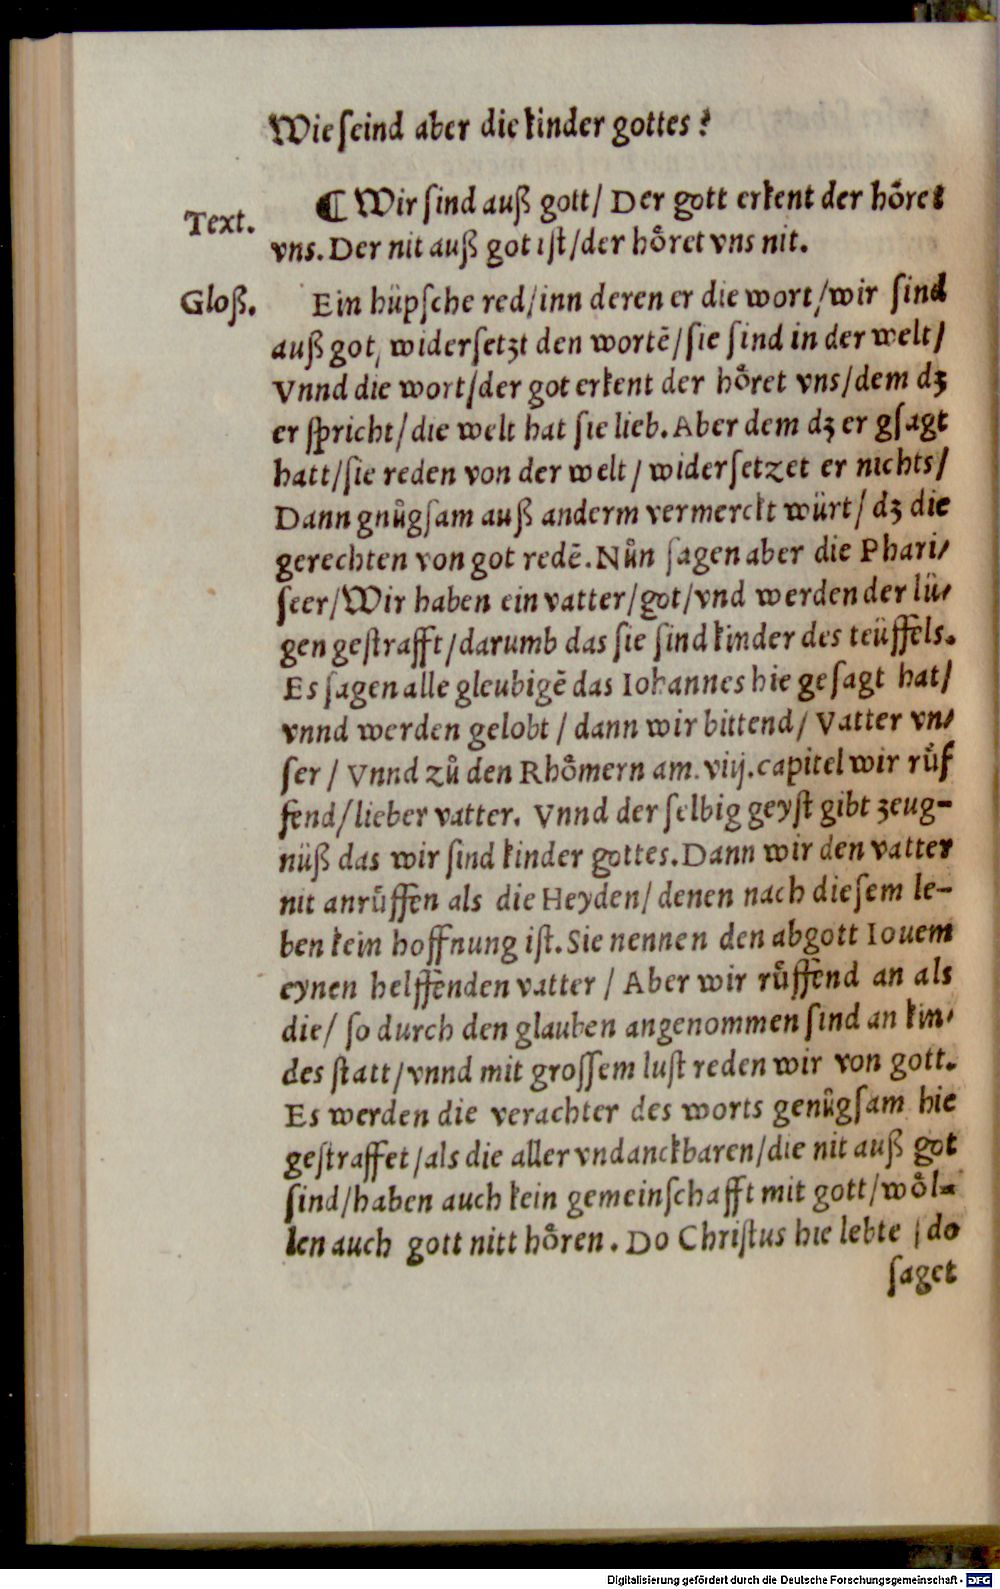 Wie ſeind aber die kinder gottes?
Text.
¶ Wir ſind auß gott/ Der gott erkent der hoͤret
vns. Der nit auß got iſt/der hoͤret vns nit.
Gloß.
Ein hüpſche red/inn deren er die wort/wir ſind
auß got, widerſetzt den wortẽ/ſie ſind in der welt/
Vnnd die wort/der got erkent der hoͤret vns/dem dʒ
er ſpricht/die welt hat ſie lieb. Aber dem dʒ er gſagt
hatt/ſie reden von der welt/widerſetzet er nichts/
Dann gnuͦgſam auß anderm vermerckt würt/ dʒ die
gerechten von got redẽ. Nuͦn ſagen aber die Phari/
ſeer/Wir haben ein vatter/got/vnd werden der lü/
gen geſtrafft/darumb das ſie ſind kinder des teüffels.
Es ſagen alle gleubigẽ das Iohannes hie geſagt hat/
vnnd werden gelobt/dann wir bittend/ Vatter vn/
ſer/ Vnnd zuͦ den Rhoͤmern am. viij. capitel wir ruͤf
fend/lieber vatter. Vnnd der ſelbig geyſt gibt zeug-
nüß das wir ſind kinder gottes. Dann wir den vatter
nit anruͤffen als die Heyden/ denen nach dieſem le-
ben kein hoffnung iſt. Sie nennen den abgott Iouem
eynen helffenden vatter/ Aber wir ruͤffend an als
die/ ſo durch den glauben angenommen ſind an kin/
des ſtatt/vnnd mit groſſem luſt reden wir von gott.
Es werden die verachter des worts genuͦgſam hie
geſtraffet/als die aller vndanckbaren/die nit auß got
ſind/haben auch kein gemeinſchafft mit gott/woͤl-
len auch gott nitt hoͤren. Do Chriſtus hie lebte / do
ſaget
Digitalisierung gefördert durch die Deutsche Forschungsgemeinschaft - DFG